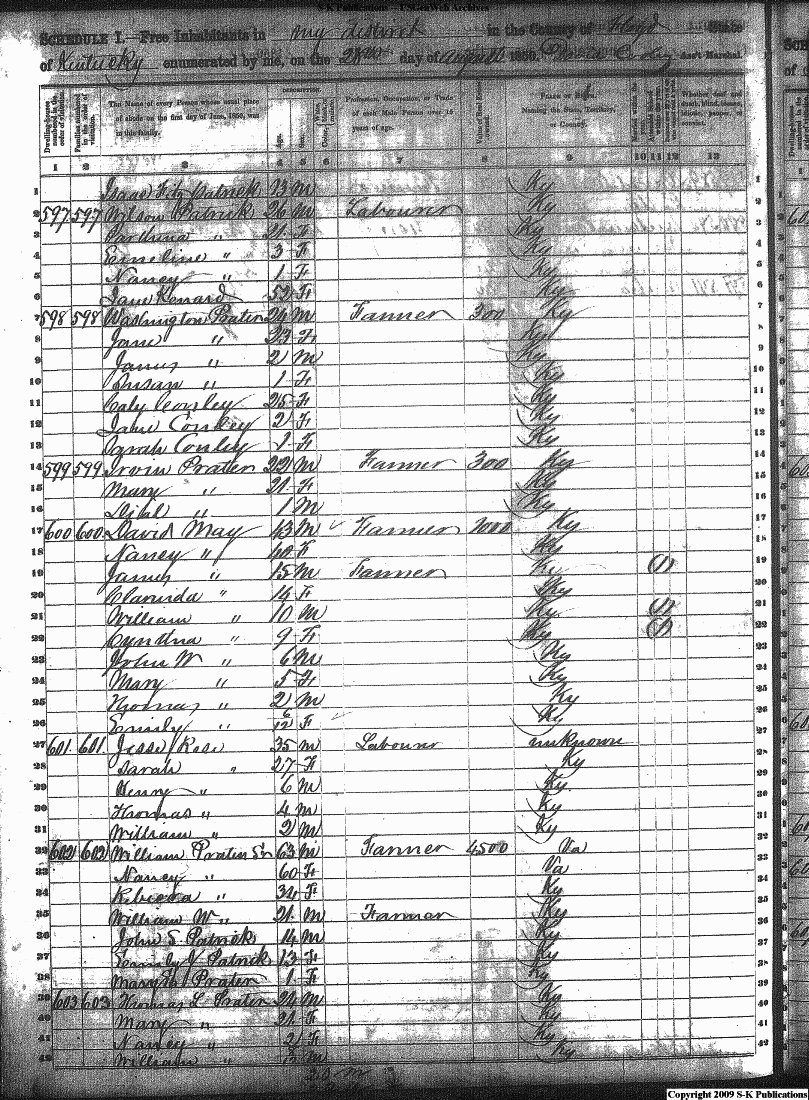 S-K Publications - USGenWeb Archives
SCHEDULE I.—Free Inhabitants in my district in the County of Floyd State
of Kentucky enumerated by me, on the 28th day of August 1850. Ass't Marshal.
DESCRIPTION.
Dwelling-houses numbered in the order of visitation.
Families numbered in the order of visitation.
The Name of every Person whose usual place of abode on the first day of June, 1850, was in this family.
Age.
Sex.
Profession, Occupation, or Trade of each Male Person over 15 years of age.
Value of Real Estate owned.
PLACE OF BIRTH.
Naming the State, Territory, or Country.
Whether deaf and dumb, blind, insane, idiotic, pauper, or convict.
1 2 3 4 5 6 7 8 9 10 11 12 13
1 Isaac Fitz Patrick 13 M Ky 1
2 597 597 Wilson Patrick 26 M Labourer Ky 2
3 " 21 F Ky 3
4 Emeline " 3 F Ky 4
5 Nancy " 1 F Ky 5
6 Jane Kenard 52 F Ky 6
7 598 598 Washington Prater 24 M Farmer 300 Ky 7
8 Jane " 23 F Ky 8
9 James " 2 M Ky 9
10 Susan " 1 F Ky 10
11 Caly Conley 25 F Ky 11
12 Jane Conley 2 F Ky 12
13 Sarah Conley 1 F Ky 13
14 599 599 Irvin Prater 22 M Farmer 300 Ky 14
15 Mary " 21 F Ky 15
16 " 1 M Ky 16
17 600 600 David May 43 M Farmer 1000 Ky
18 Nancy " 40 F Ky
19 James " 15 M Farmer Ky (1)
20 Clarinda " 14 F Ky
21 William " 10 M Ky (1)
22 Cynthia " 9 F Ky (1)
23 John W " 6 M Ky
24 Mary " 5 F Ky
25 Thomas " 2 M Ky
26 Emily " 6/12 F Ky
27 601 601 Jesse Rose 35 M Labourer unknown
28 Sarah " 27 F Ky
29 Henry " 6 M Ky
30 Thomas " 4 M Ky
31 William " 2 M Ky
32 602 602 William Prater Sr 63 M Farmer 4500 Va
33 Nancy " 60 F Va
34 Rebecca " 34 F Ky
35 William W " 21 M Farmer Ky
36 John S Patrick 14 M Ky
37 Emily J Patrick 13 F Ky
38 Mary Prater 1 F Ky
39 603 603 Thomas L Prater 24 M Ky
40 Mary " 21 F Ky
41 Nancy " 2 F Ky
42 William " M Ky
Copyright 2009 S-K Publications